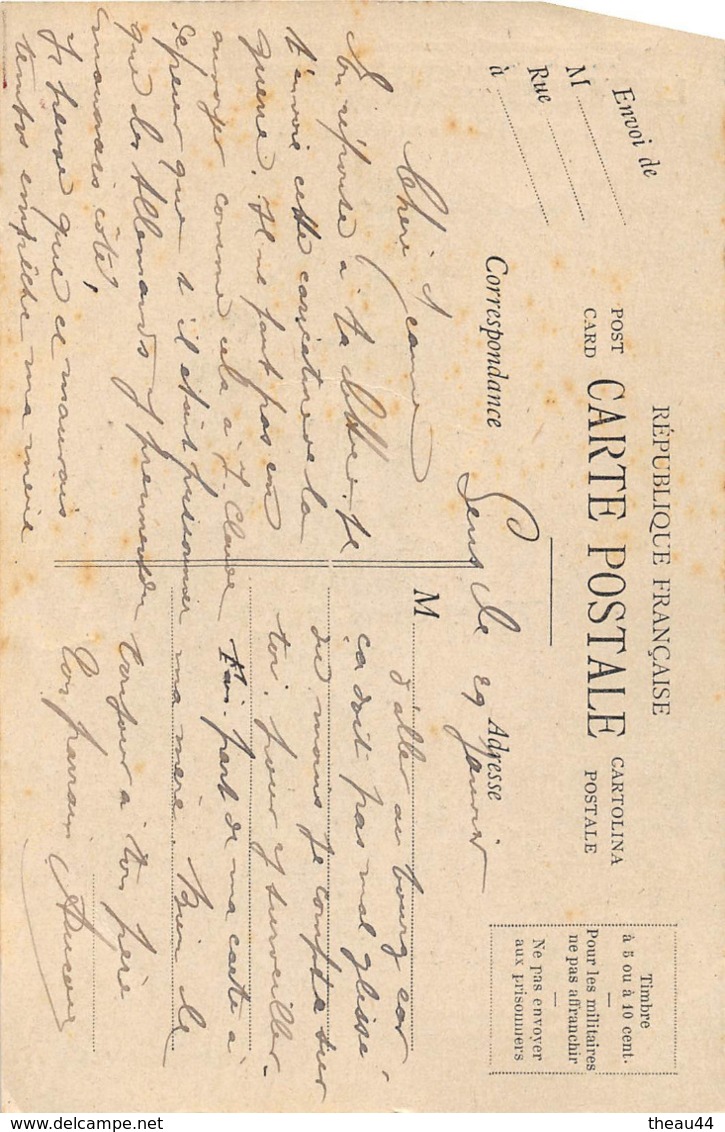 Envoi de
M
Rue
à
RÉPUBLIQUE FRANÇAISE
POST CARD
CARTE POSTALE
CARTOLINA POSTALE
Timbre
à 5 ou à 10 cent.
Pour les militaires
ne pas affranchir
Ne pas envoyer
aux prisonniers
Correspondance
Adresse
M
Sens le 29 janvier
Chéri Jeanne
En réponse à ta lettre. Je
t'envoie cette caricature de la
guerre. Il ne faut pas en
envoyer comme cela à J. Claude
de peur que s'il était prisonnier
que des Allemands y prennent du
mauvais côté,
Je pense que ce mauvais
temps empêche ma mère
d'aller au bourg car
ça doit pas mal glisser
du moins je compte sur
toi pour y surveiller.
Fais part de ma carte à
ma mère. Bien le
bonjour à ton père
Ton parrain
theau44